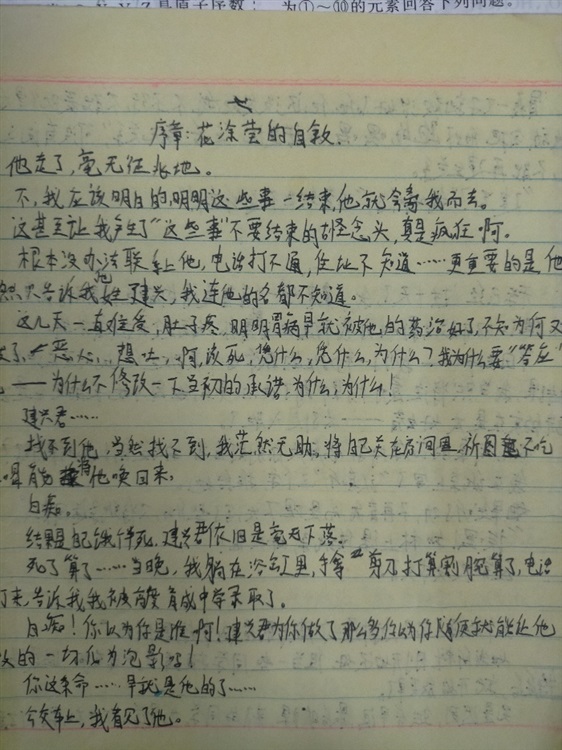 Y、Z是原子序数
为①～⑩的元素回答下列问题。
序章：花涂萤的自叙
他走了，毫无征兆地。
不，我应该明白的，明明这些事一结束，他就会离我而去。
这甚至让我产生了“这些事”不要结束的古怪念头，真是疯狂啊。
根本没办法联系上他，电话打不通，住址不知道……更重要的是他
然只告诉我他姓建兴，我连他的名都不知道。
这几天一直难受，肚子疼，明明胃病早就被他的药治好了，不知为何又
了，恶心，想吐，啊，该死，凭什么，凭什么，为什么？我为什么要“答应”
——为什么不修改一下当初的承诺，为什么，为什么！
建兴君……
找不到他，当然找不到，我茫然无助，将自己关在房间里，祈图不吃
喝能将他唤回来，
白痴。
结果是饿得半死，建兴君依旧是毫无下落。
死了算了……当晚，我躺在浴缸里，手拿剪刀打算割腕算了，电话
打来，告诉我我被育成中学录取了。
白痴！你以为你是谁啊！建兴君为你做了那么多你以为你随便就能让他
的一切化为泡影吗！
你这条命……早就是他的了……
公交车上，我看见了他。